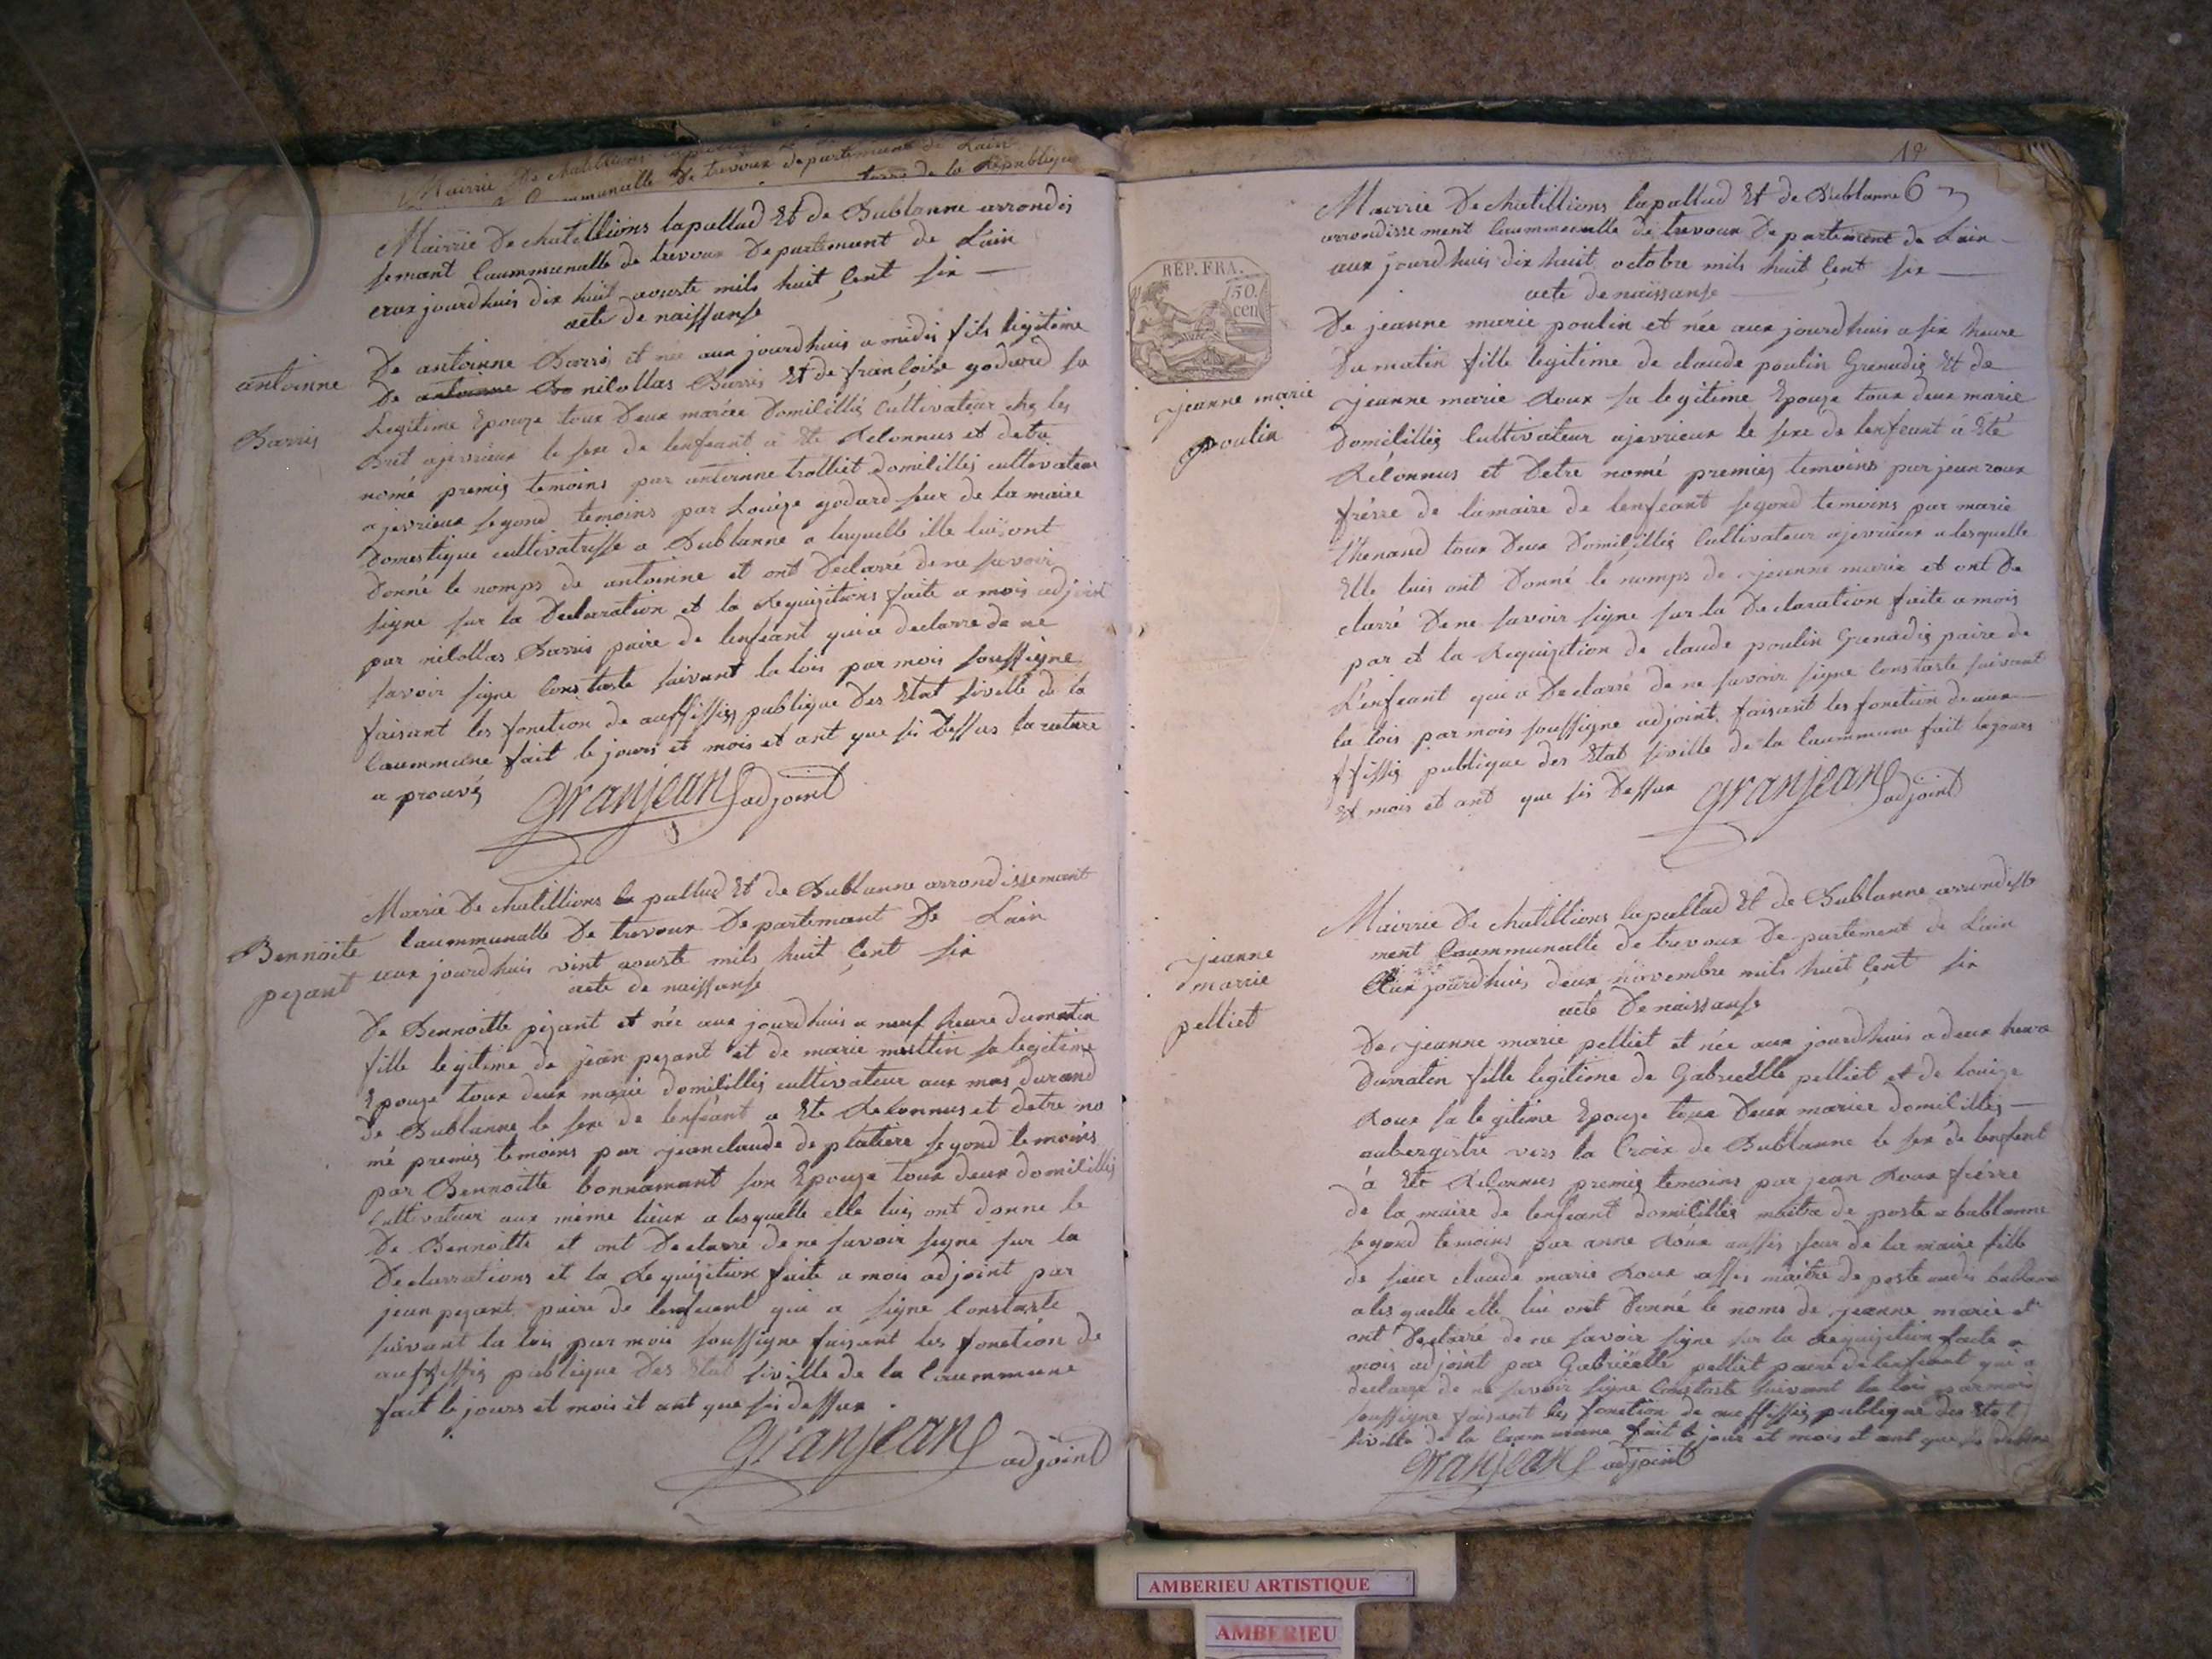 Mairrie De chatillions lapallud
Communalle De trevoux departement de Lain
de la Republique
Mairrie De chatillions lapallud Et de Bublanne arrondis
semant Caummunalle de trevoux Departemant de Lain
aux jourdhuis dix huit aouste mils huit Cent six
acte de naissanse
antoinne
Barris
De antoinne Barris et née aux jourdhuis a midis fils legitime
De nicollas Barris Et de francoise godard sa
Legitime Epouze toux Deux mariée Domicilliés Cultivateur chz les
Bret ajevrieux le sexe de lenfeant a Ete Reconnus et detre
nomé premis temoins par antoinne trolliet domicilliés cultivateur
ajevrieux segond temoins par Louize godard seur de la maire
Domestique cultivatrisse a Bublanne a lesquelle ille luis ont
Donné le nomps de antoinne et ont Declarré de ne savoir
signe sur la Declaration et la Requizitions faite a mois adjoint
par nicollas Barris paire de lenfeant quia declarre de ne
savoir signe Constaste suivant la lois par mois soussigne
faisant les fonction de auffissies publique Des Etat siville de la
Caummune fait le jours et mois et ant que sis Dessus la rature
a prouvés
granjean adjoint
Mairie De chatillions la pallud Et de Bublanne arrondissemant
Caummunalle De trevoux Departemant De Lain
aux jourdhuis vint aouste mils huit Cent six
acte de naissanse
Bennoite
pezant
De Bennoitte pezant et née aux jourdhuis a neuf heure dumatin
fille legitime de jean pezant et de marie muttin sa legitime
Epouze toux deux marie domicilliés cultivateur aux mas durand
de Bublanne le sexe de lenfeant a Ete Reconnus et detre no
mé premis temoins par jean claude de platiere segond temoins
par Bennoitte bonnamant son Epouze toux deux domicilliés
Cultivateur aux même lieux a lesquelle elle luis ont donne le
De Bennoitte et ont Declarre de ne savoir signe sur la
Declarrations et la Requizition faite a mois adjoint par
jean pezant paire de lenfeant qui a signe Constaste
suivant la lois par mois soussigne faisant les fonction de
auffissis publique Des Etat siville de la Caummune
fait le jours et mois et ant que sis dessux
granjean adjoint
19
6
REP. FRA.
50.
cen
Mairrie De chatillions lapallud Et de Bublanne
arrondissement Caummunalle de trevoux Departement de Lain
aux jourdhuis dix huit octobre mils huit Cent six
acte de naissanse
jeanne marie
poulin
De jeanne marie poulin et née aux jourdhuis a six heure
Du matin fille legitime de claude poulin Grenadis Et de
jeanne marie Roux sa legitime Epouze toux deux marie
Domicilliés Cultivateur ajevrieux le sexe de lenfeant á Eté
Réconnus et Detre nomé premies temoins par jean roux
frérre de lamaire de lenfeant segond temoins par marie
thenand toux Deux Domicilliés Cultivateur ajevrieux a lesquelle
Elle luis ont Donné le nomps de jeanne marie et ont De
clarré De ne savoir signe sur la Declaration faite a mois
par et la Requizition de claude poulin Grenadis paire de
Lenfeant qui a Declarré de ne savoir signe Constaste suivant
la lois par mois soussigne adjoint faisant les fonction de aux
ffissis publique des Etat siville de la Caummune fait lejours
Et mois et ant que sis Dessux granjean adjoint
Mairrie De chatillions lapallud Et de Bublanne arrondisse
ment Caummunalle de trevoux Departement de Lain
Aux jourdhuis deux novembre mils huit Cent six
acte De naissanse
jeanne
marrie
pelliet
De jeanne marie pelliet et née aux jourdhuis a deux heure
Dumatin fille legitime de Gabrielle pelliet et de Louize
Roux sa legitime Epouze toux Deux mariee domicilliés
aubergistre vers la Croix de Bublanne le sexe de lenfent
á Ete Reconnues premis temoins par jean Roux frérre
de la maire de lenfeant domicilliés maitre de poste a bublanne
segond temoins par anne Roux aussis seur de la maire fille
de sieur claude marie Roux assis maitre de poste audis bublane
a lesquelle elle lui ont Donné le noms de jeanne marie et
ont Declarré de ne savoir signe sur la Requizition faite a
mois adjoint par Gabrielle pelliet paire de lenfeant qui a
declarre de ne savoir signe Constaste suivant la lois par mois
soussigne faisant les fonction de auffissis publique des Etat
siville de la Caummune fait le jour et mois et ant que sis dessus
granjean adjoint
AMBERIEU ARTISTIQUE
AMBERIEU